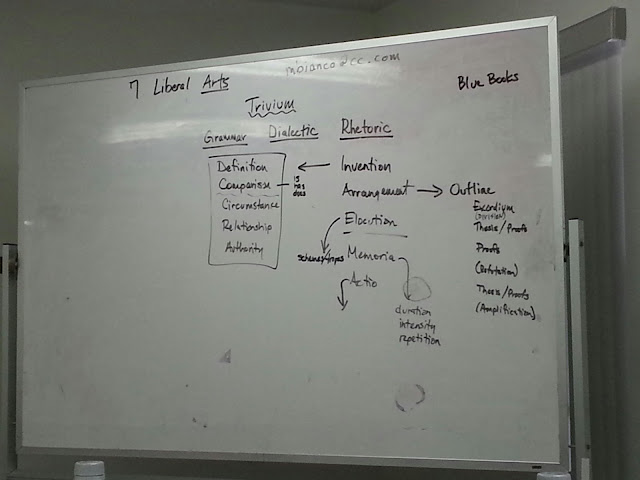 mbianco@cc.com
7 Liberal Arts
Blue Books
Trivium
Grammar Dialectic Rhetoric
Definition
Comparison
is
has
does
Circumstance
Relationship
Authority
Invention
Arrangement
Elocution
schemes/tropes
Memoria
Actio
duration
intensity
repetition
Outline
Exordium
(Division)
Thesis/Proofs
Proofs
(Refutation)
Thesis/Proofs
(Amplification)